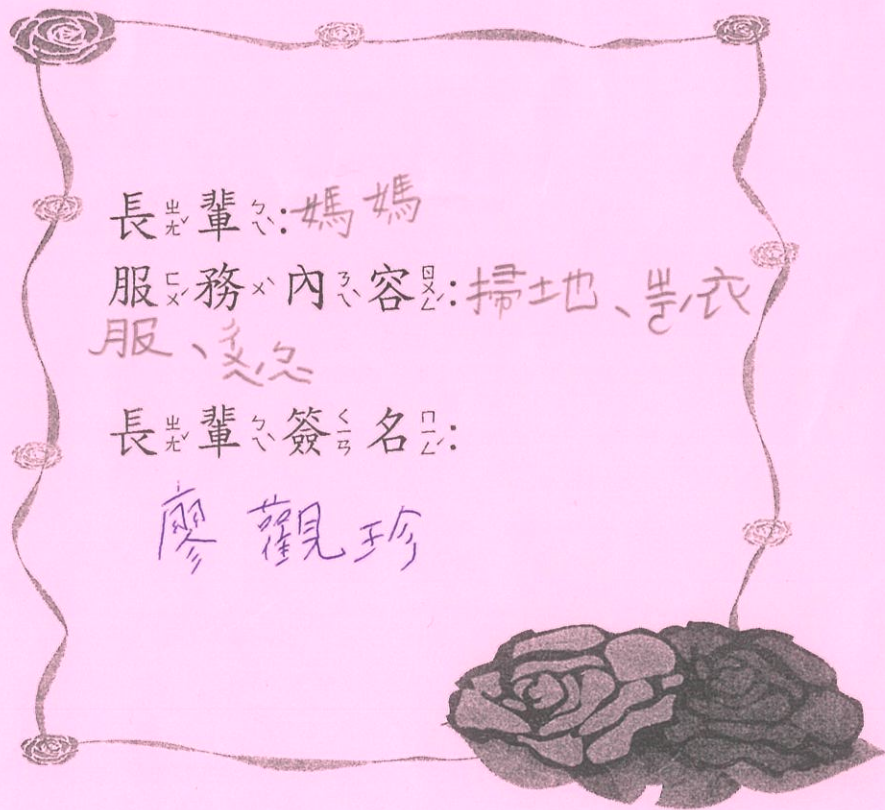 長ㄓㄤˇ輩ㄅㄟˋ:媽媽
服ㄈㄨˊ務ㄨˋ內ㄋㄟˋ容ㄖㄨㄥˊ:掃地、ㄓㄜˊ衣
服、ㄔㄨㄟˊㄅㄟˋ
長ㄓㄤˇ輩ㄅㄟˋ簽ㄑㄧㄢ名ㄇㄧㄥˊ:
廖觀珍